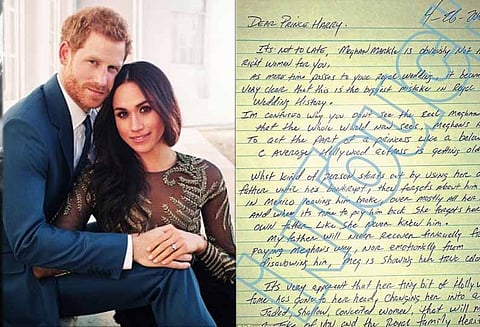 4-26-20
Dear Prince Harry,
It's not to late, Meghan Markle is obviously not the
right women for you.
As more time passes to your royal wedding, it became
very clear that this is the biggest mistake in royal
wedding History.
I'm confused why you don't see the real Meghan
that the whole world now sees. Meghan's
To act the part of a princess like a below
C average Hollywood actress is getting old.
What kind of person starts out by using her own
father until he's bankrupt, then forgets about him
in Mexico leaving him broke, over mostly all her
And when it's time to pay him back she forgets her
own father like she never knew him.
My father will never recover financially from
paying Meghan's way, nor emotionally from
disavowing him, Meg is showing her true colo
It's very apparent that her tiny bit of Holly
fame has gone to her head, changing her into a
Jaded, shallow, conceited woman, that will m
a joke of you and the Royal family Herit